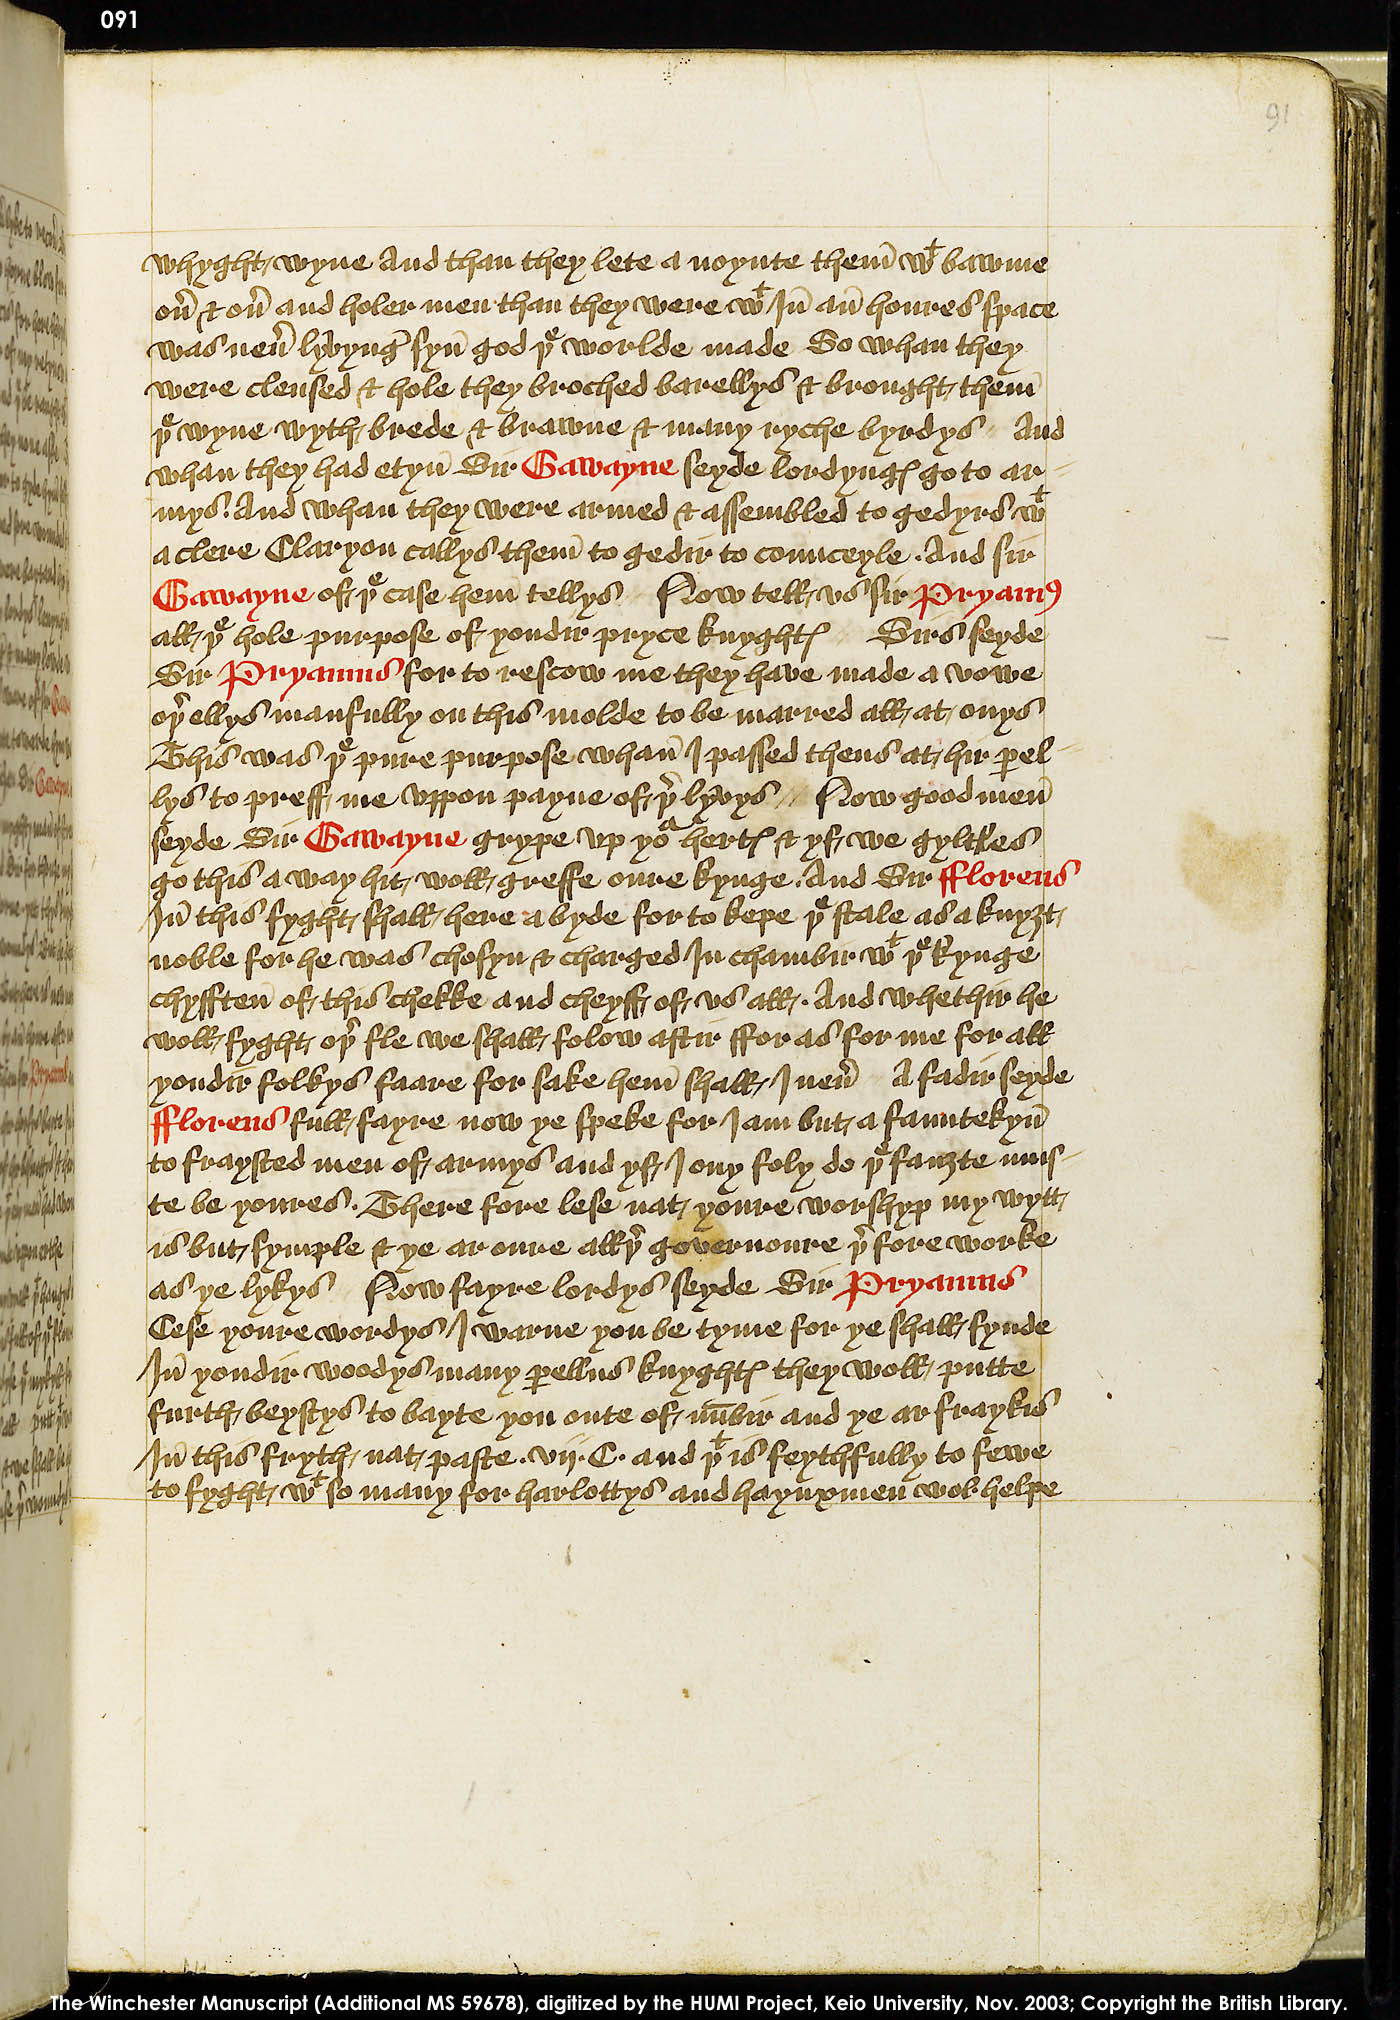 091
91
whyght wyne And than they lete a noynte them̄ wᵗ bawme
ou͛ & ou͛ and holer men than they were wᵗ In̄ an̄ houres space
was neu͛ lyvynḡ syn̄ god þᵉ worlde made So whan they
were clensed & hole they broched barellys & brought them̄
þᵉ wyne wyth brede & brawne & many ryche byrdys // And
whan they had etyn̄ Sir Gawayne seyde lordyngꝭ go to ar=
mys. And whan they were armed & assembled to gedyrs wᵗ
a clere Claryon callys them̄ to gedir to counceyle. And sir
Gawayne of þᵉ case hem̄ tellys // Now tell vs sir Pryamꝰ
all þᵉ hole purpose of yondir pryce knyghtꝭ // Sirs seyde
Sir Pryamus for to rescow me they have made a vowe
oþ͛ ellys manfully on this molde to be marred all at onys
This was þᵉ pure purpose whan̄ I passed thens at hir ꝑel=
lys to preff me vppon payne of þ͛ lyvys // Now good men̄
seyde Sir Gawayne grype vp yoᵃ hertꝭ & yf we gyltles
go this a way hit woll greffe oure kynge. And Sir Florens
In̄ this fyght shall here a byde for to kepe þᵉ stale as a knyȝt
noble for he was chosyn & charged In chambir wᵗ þᵉ kynge
chyfften̄ of this chekke and cheyff of vs all. And whethir he
woll fyght oþ͛ fle we shall folow aftir ffor as for me for all
yondir folkys faare for sake hem̄ shall I neu͛ // A fadir seyde
Florens full fayre now ye speke for I am but a fauntekyn̄
to fraysted men of armys and yf I ony foly do þᵉ fauȝte mus=
te be youres. There fore lese nat youre worshyp my wytt
is but symple & ye ar oure allþ͛ governoure þ͛ fore worke
as ye lykys // Now fayre lordys seyde Sir Pryamus
Cese youre wordys I warne you be tyme for ye shall fynde
In̄ yondir woodys many ꝑellus knyghtꝭ they woll putte
furth beystys to bayte you oute of nūbir and ye ar fraykis
In̄ this fryth nat paste. vij. C. and þᵗ is feythfully to fewe
to fyght wᵗ so many for harlottys and haynxmen wol helpe
The Winchester Manuscript (Additional MS 59678), digitized by the HUMI Project, Keio University, Nov. 2003; Copyright the British Library.